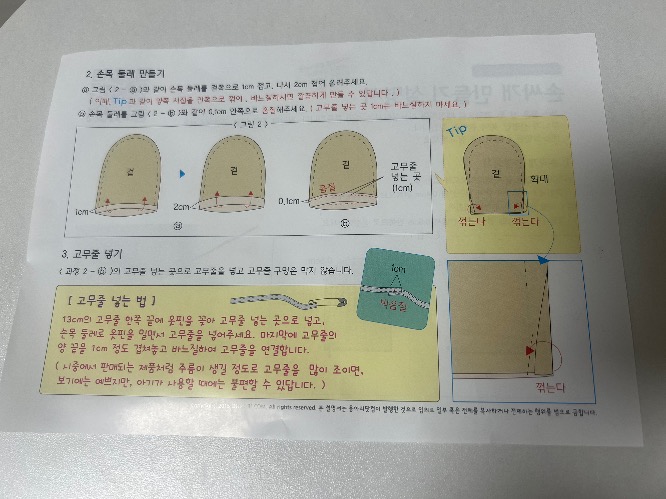 2. 손목 둘레 만들기
ⓐ 그림 < 2 - ⓐ >와 같이 손목 둘레를 겉쪽으로 1cm 접고, 다시 2cm 접어 올려주세요.
( 이때, Tip과 같이 양쪽 시접을 안쪽으로 꺾어, 바느질하시면 깔끔하게 만들 수 있답니다. )
ⓑ 손목 둘레를 그림 < 2 - ⓑ >와 같이 0.1cm 안쪽으로 홈질해주세요. ( 고무줄 넣는 곳 1cm는 바느질하지 마세요. )
< 그림 2 >
겉
1cm
겉
2cm
ⓐ
겉
홈질
0.1cm
고무줄
넣는 곳
(1cm)
ⓑ
Tip
겉
확대
꺾는다
꺾는다
꺾는다
3. 고무줄 넣기
< 과정 2 - ⓑ >의 고무줄 넣는 곳으로 고무줄을 넣고 고무줄 구멍은 막지 않습니다.
1cm
[ 고무줄 넣는 법 ]
13cm의 고무줄 한쪽 끝에 옷핀을 꽂아 고무줄 넣는 곳으로 넣고,
손목 둘레로 옷핀을 밀면서 고무줄을 넣어주세요. 마지막에 고무줄의
양 끝을 1cm 정도 겹쳐놓고 바느질하여 고무줄을 연결합니다.
( 시중에서 판매되는 제품처럼 주름이 생길 정도로 고무줄을 많이 조이면,
보기에는 예쁘지만, 아기가 사용할 때에는 불편할 수 있답니다. )
All rights reserved.